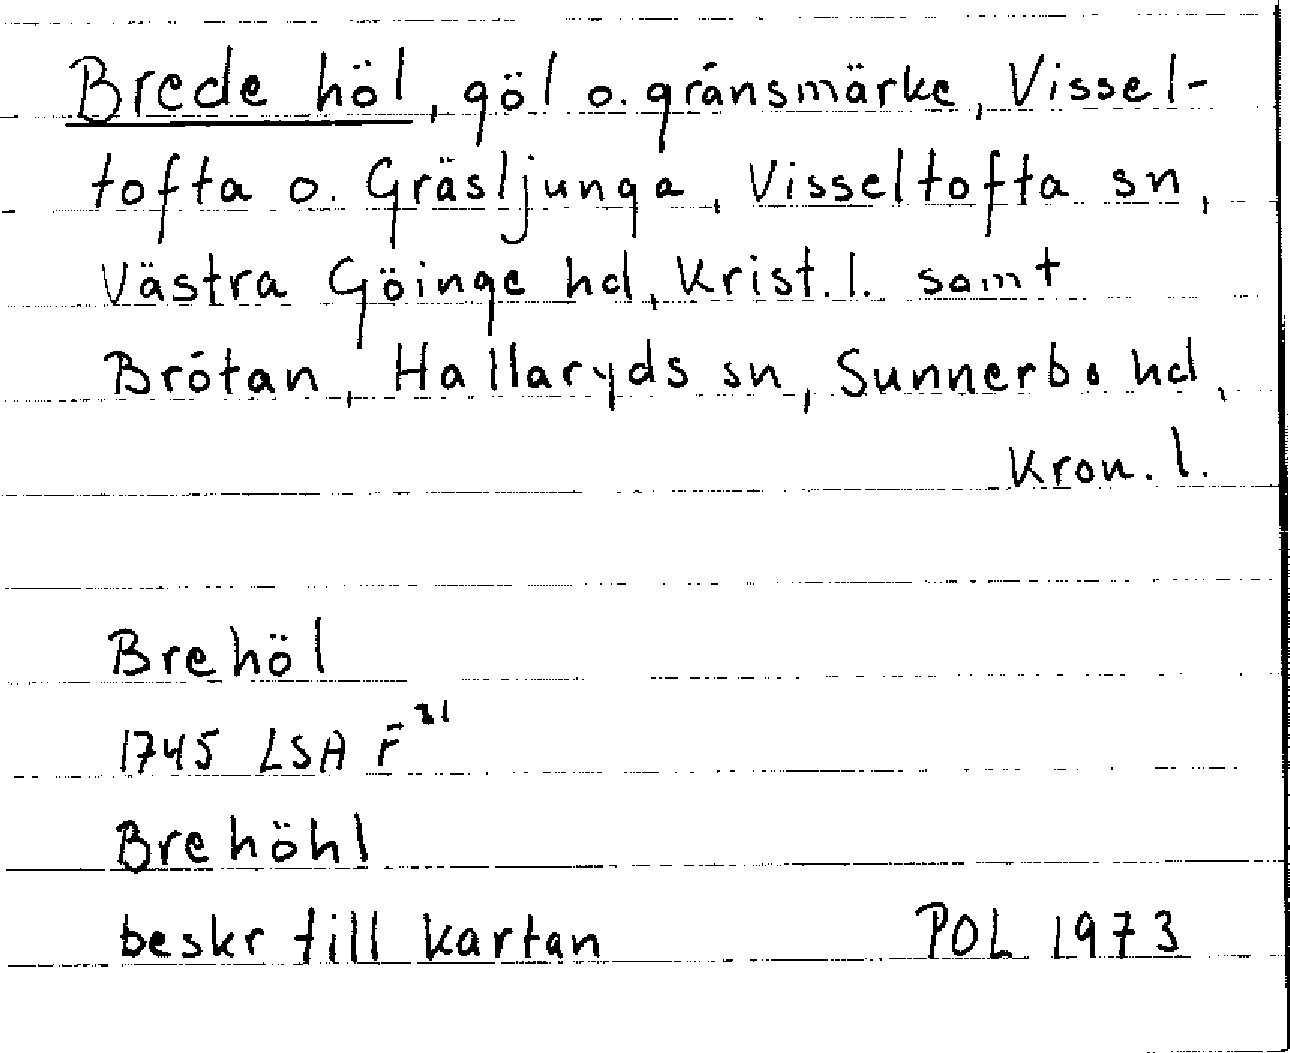 Brede höl, göl o. gränsmärke, Vissel-
tofta o. Gräsljunga, Visseltofta sn,
Västra Göinge hd, Krist. l. samt
Brötan, Hallaryds sn, Sunnerbo hd,
Kron. l.
Brehöl
1745 LSA F²¹
Brehöhl
beskr till kartan POL 1973